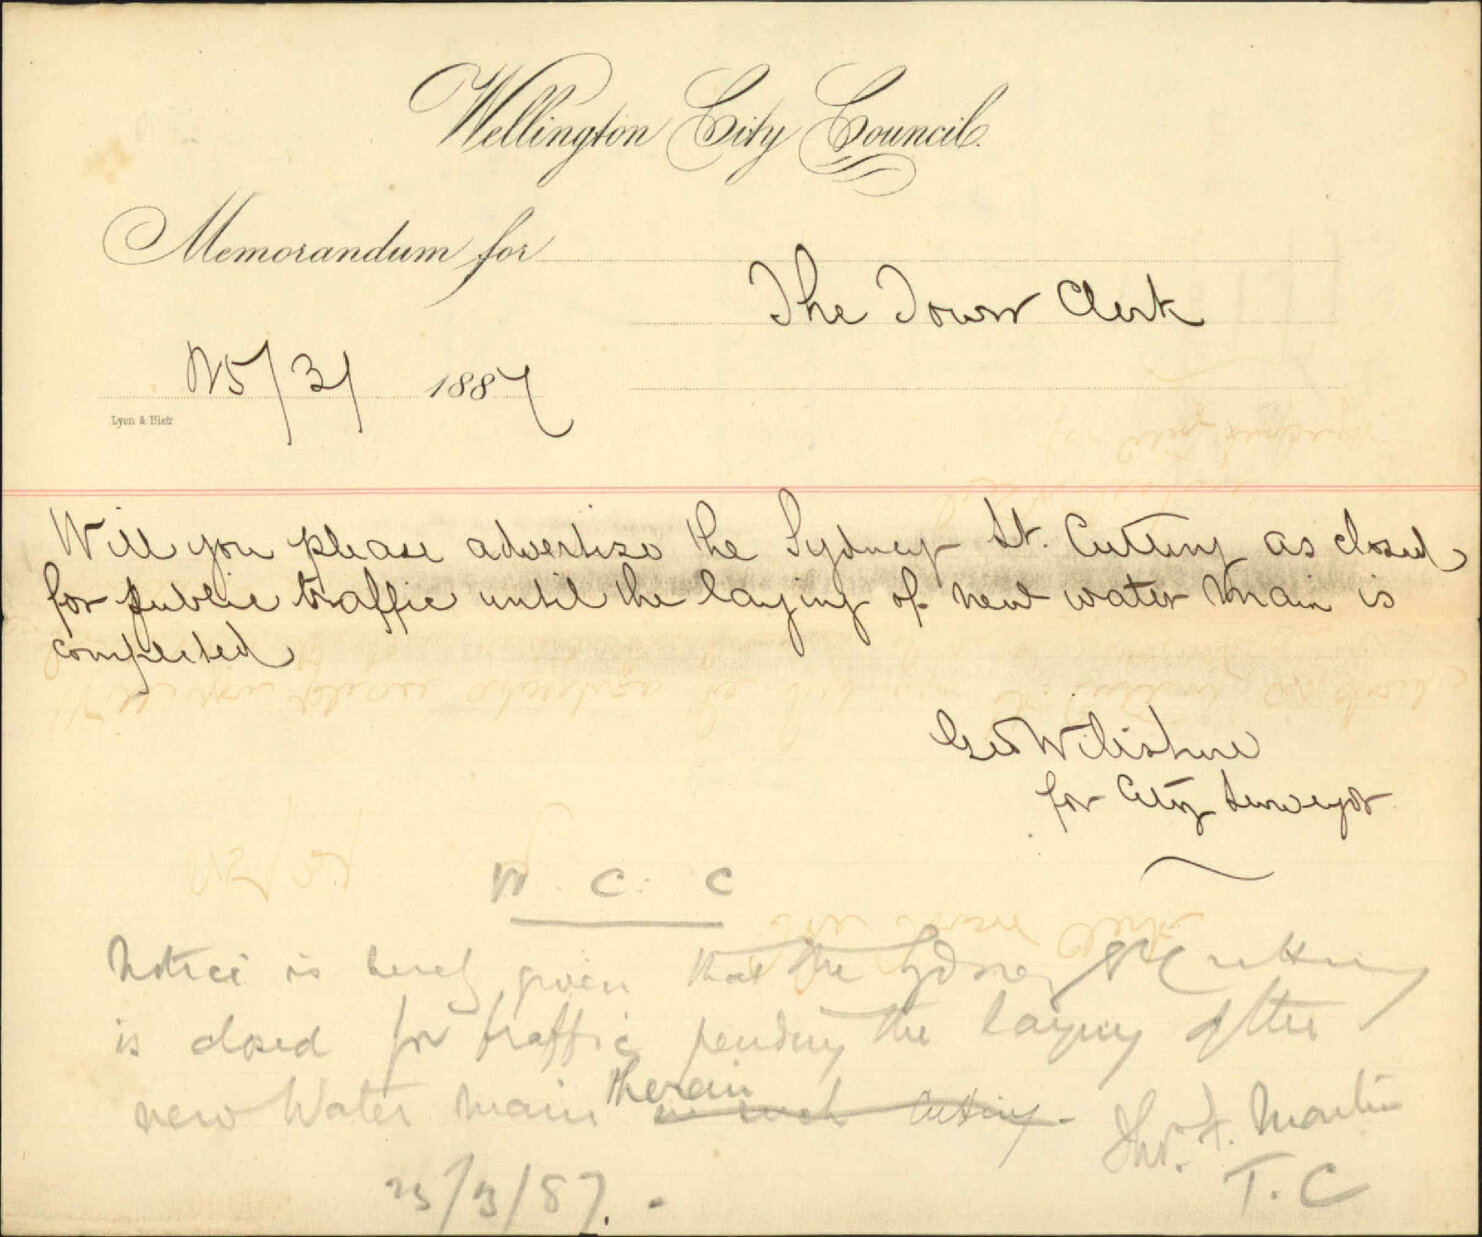 Wellington City Council.
Memorandum for
The Town Clerk
25/3/ 1887
Lyon & Blair
Will you please advertise the Sydney St. Cutting as closed
for public traffic until the laying of new water main is
completed
Geo Wiltshire
for City Surveyor
W. C. C
Notice is hereby given that the Sydney St Cutting
is closed for traffic pending the laying of the
new Water main therein in such cutting -
Thos. F. Martin
T. C
25/3/87.